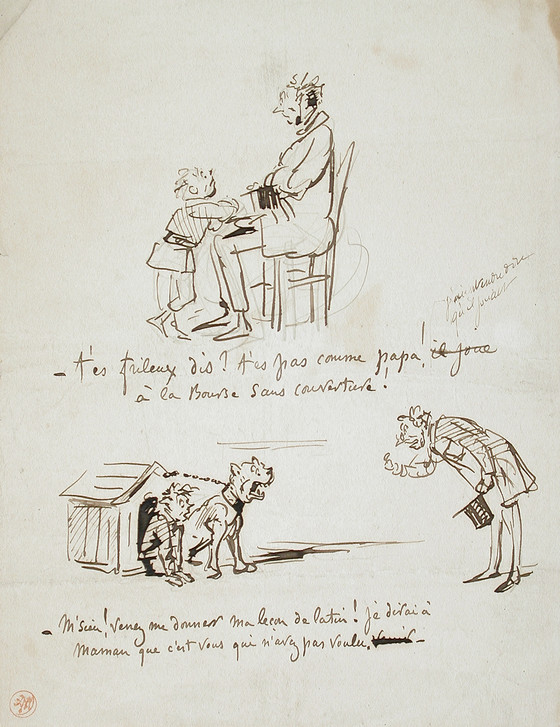 - T'es frileux dis? t'es pas comme papa! il joue
à la Bourse sans couverture!
j'ai entendu dire
qu'il jouait
- M'sieu! venez me donner ma leçon de latin! je dirai à
Maman que c'est vous qui n'avez pas voulu. venir -